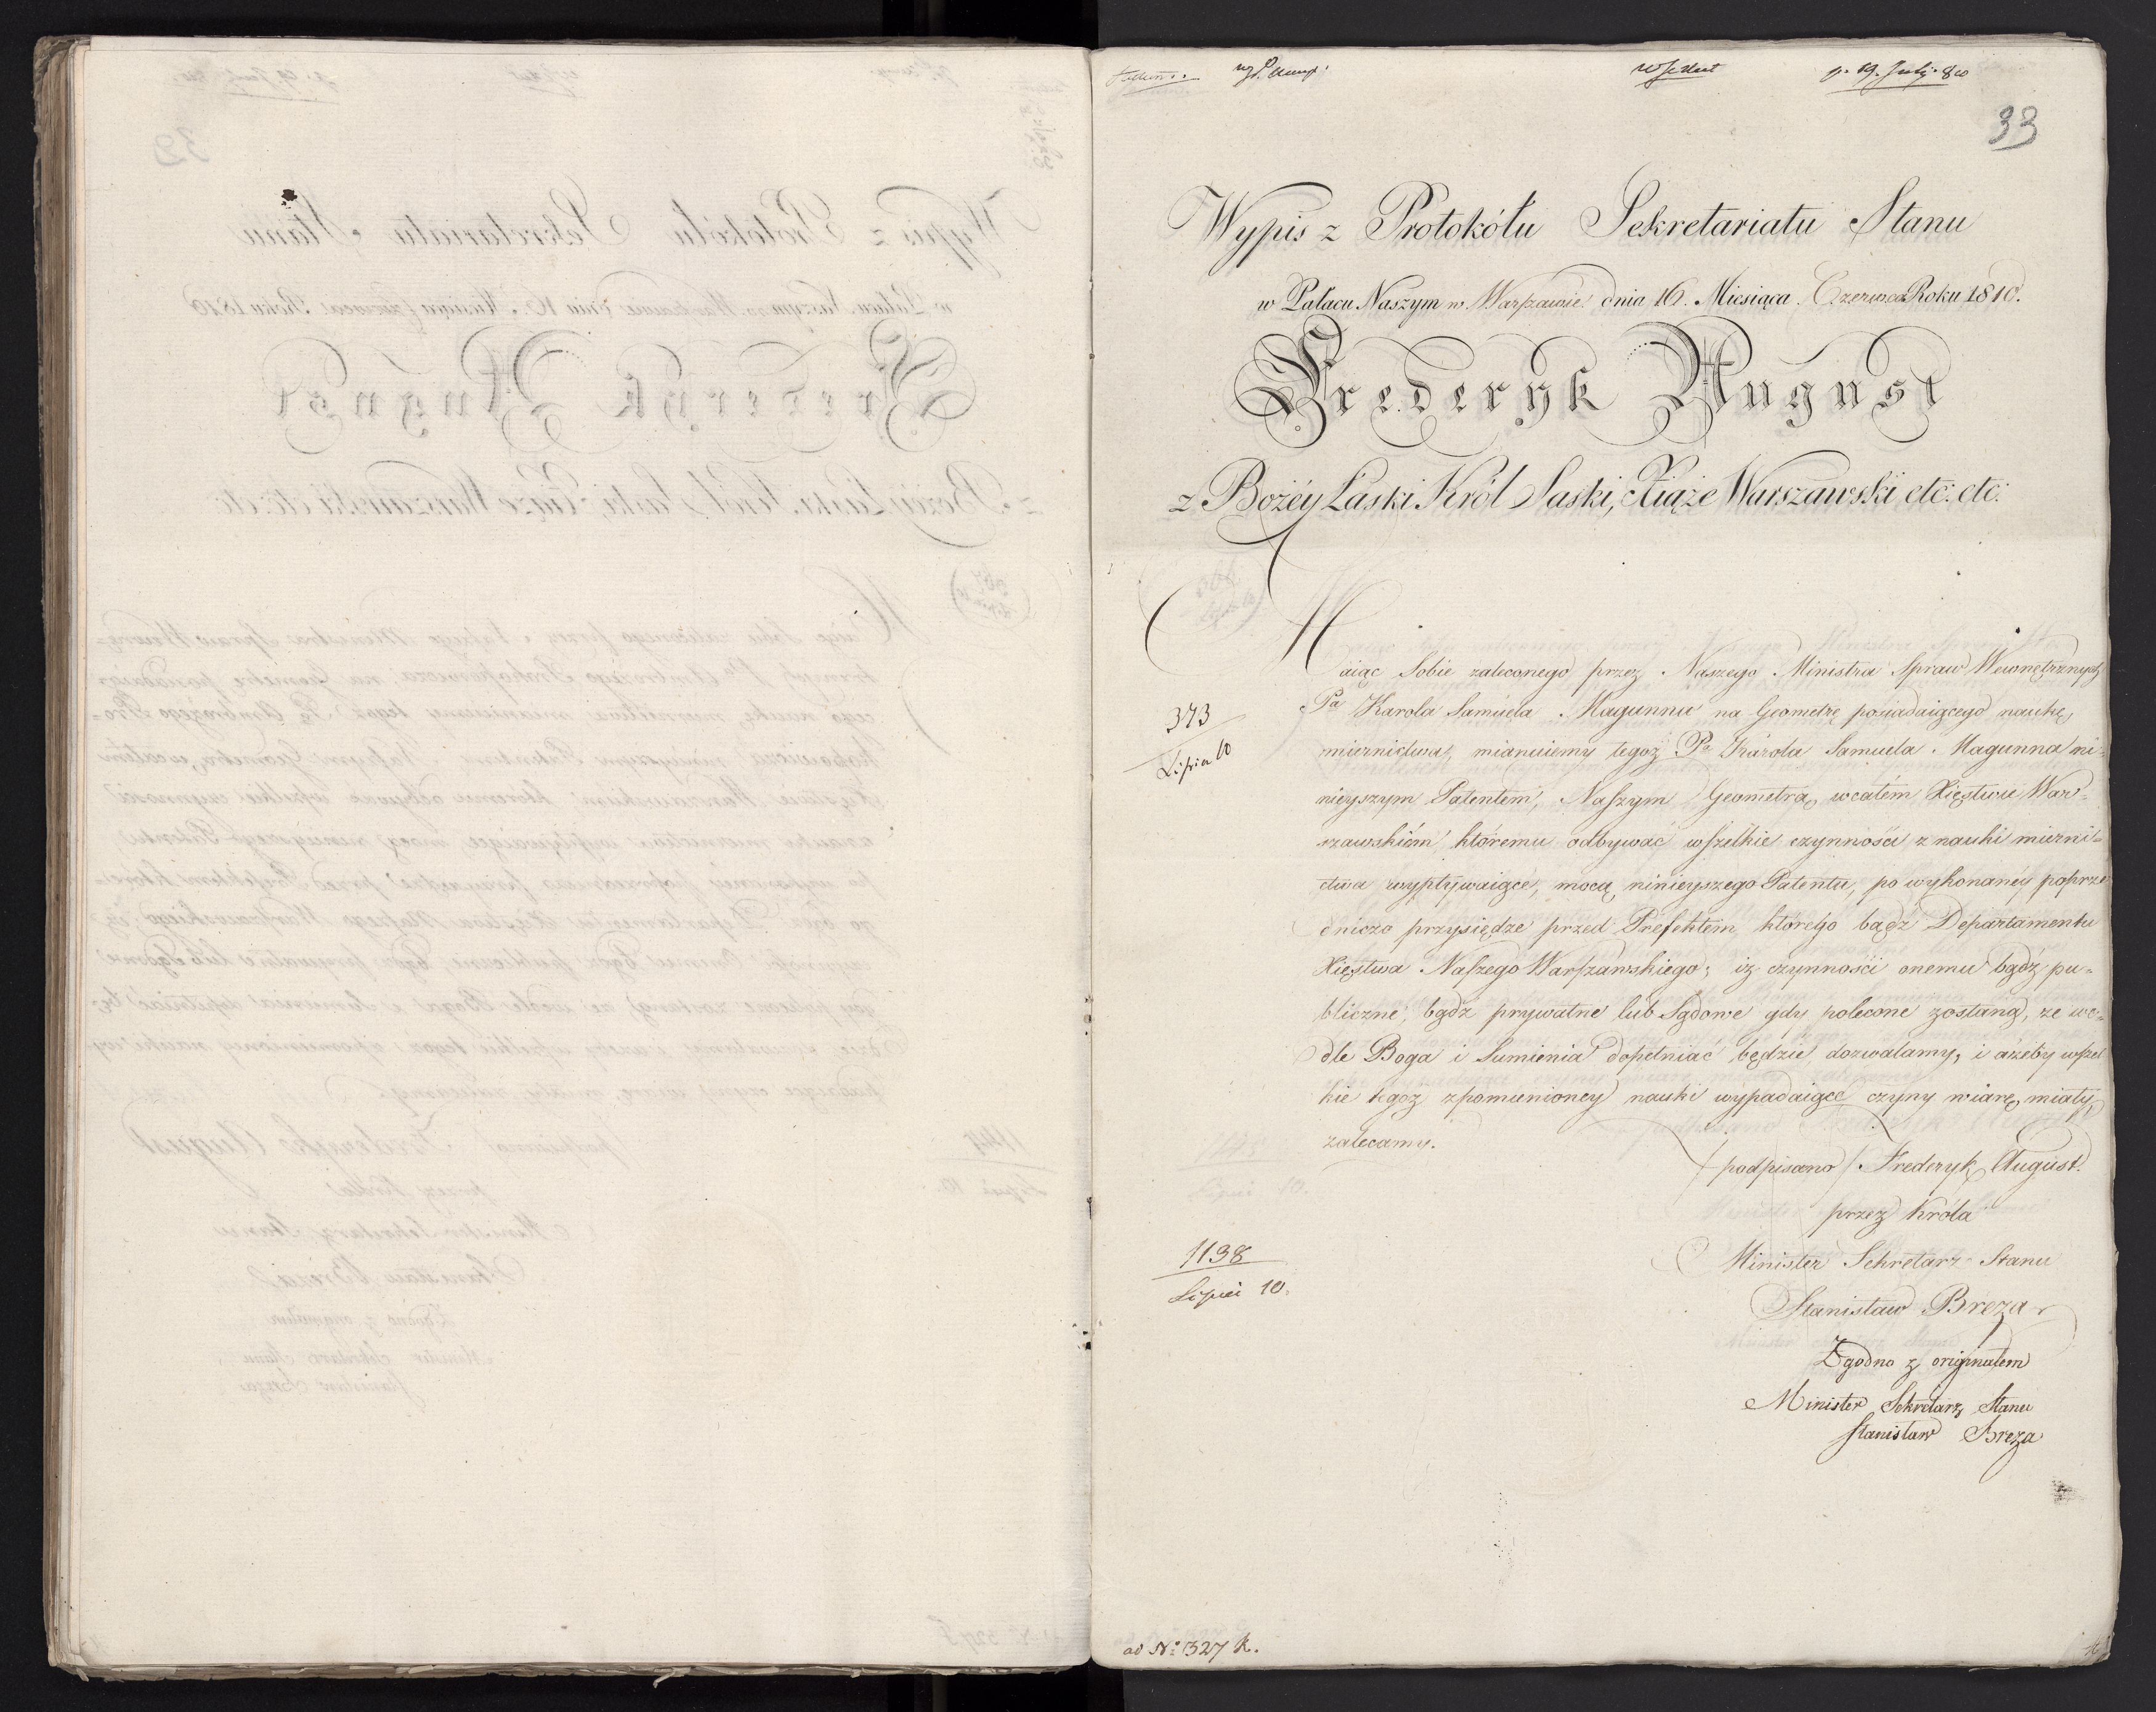 33
Wypis z Protokółu Sekretariatu Stanu
w Pałacu Naszym w Warszawie dnia 16. Miesiąca Czerwca Roku 1810.
Frederyk August
z Bożéy Łaski Król Saski, Xiąże Warszawski etc: etc:
Maiąc Sobie zaleconego przez Naszego Ministra Spraw Wewnętrznych
Pa Karola Samuela Magunna na Geometrę posiadaiącego naukę
miernictwa, mianuiemy tegoż Pa Karola Samuela Magunna ni-
nieyszym Patentem, Naszym Geometrą w całém Xięstwie War-
szawskiém któremu odbywać wszelkie czynności z nauki mierni-
ctwa wypływaiące, mocą ninieyszego Patentu, po wykonaney poprze
dniczo przysiędze przed Prefektem którego bądź Departamentu
Xięstwa Naszego Warszawskiego; iż czynności onemu bądź pu-
bliczne, bądź prywatne lub Sądowe gdy polecone zostaną, ze we-
dle Boga i Sumienia dopełniać będzie dozwalamy, i ażeby wszel
kie tegoż zpomienioney nauki wypadaiące czyny wiarę miały,
zalecamy.
/podpisano/ Frederyk August.
przez Króla
Minister Sekretarz Stanu
Stanisław Breza
Zgodno z originałem
Minister Sekretarz Stanu
Stanisław Breza
373
Lipca 10
1138
Lipca 10.
ad No 327 R.